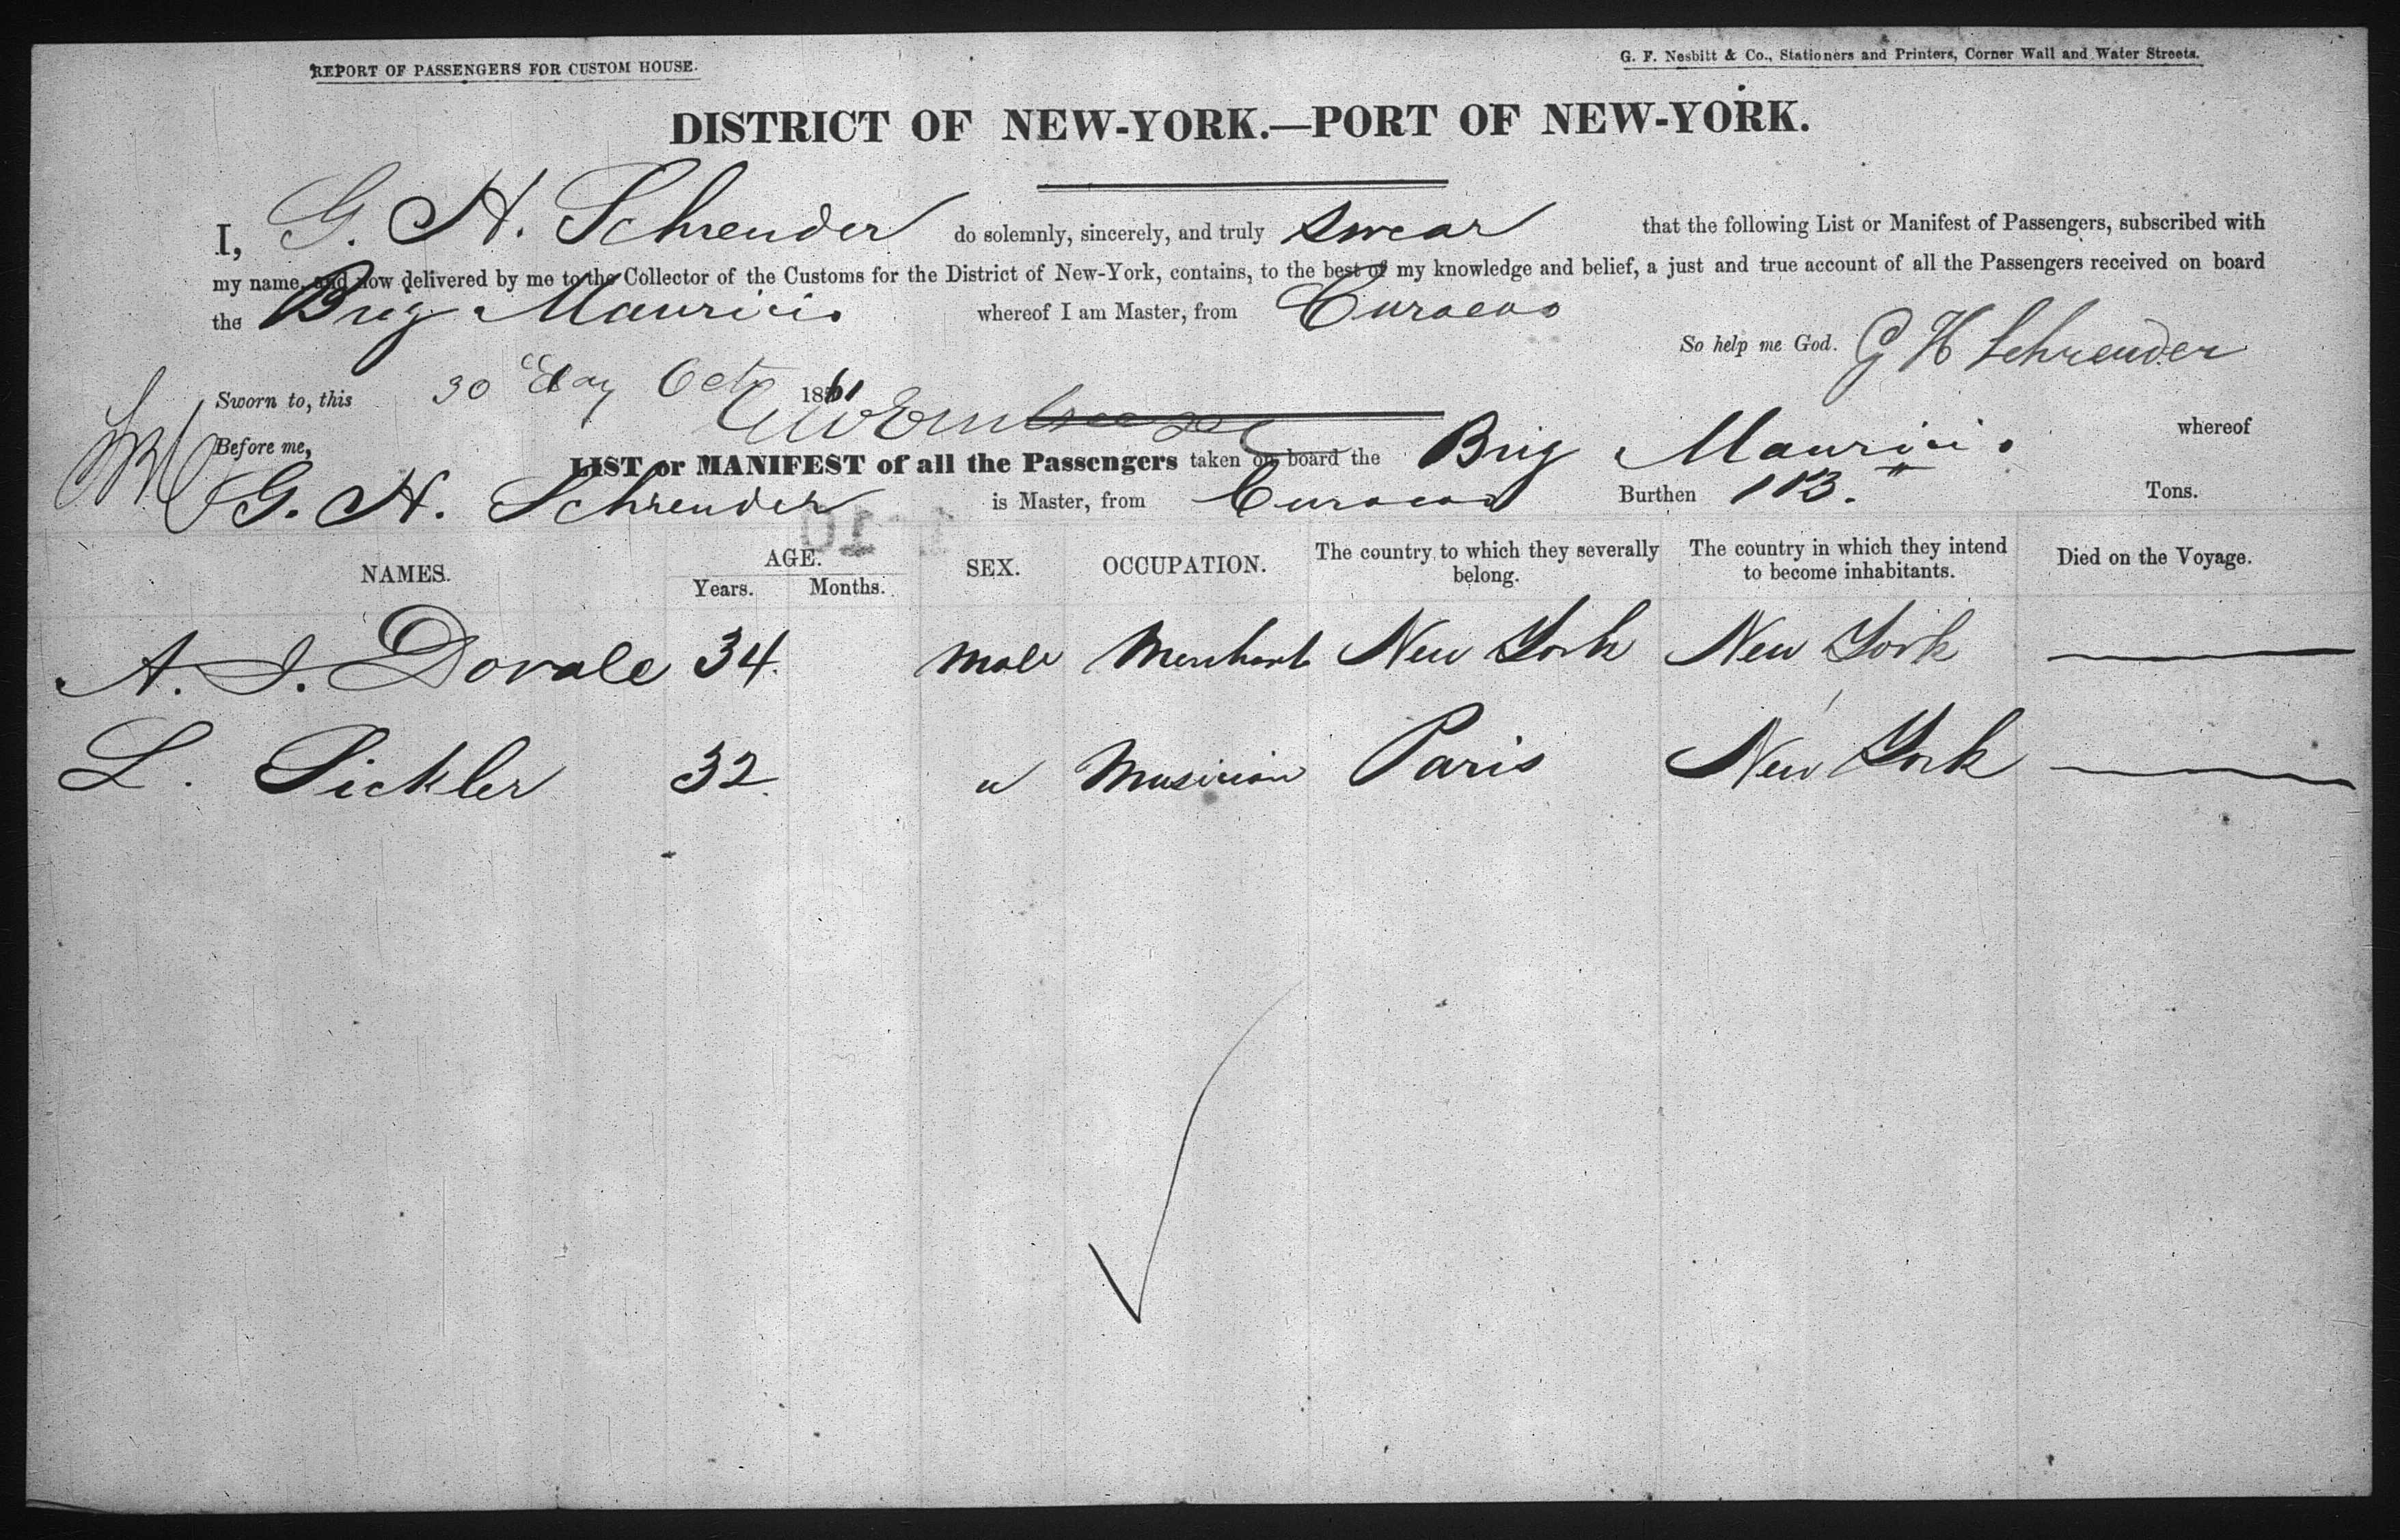 REPORT OF PASSENGERS FOR CUSTOM HOUSE.
G. F. Nesbitt & Co., Stationers and Printers, Corner Wall and Water Streets.
DISTRICT OF NEW-YORK.—PORT OF NEW-YORK.
I, G. H. Schreuder do solemnly, sincerely, and truly swear that the following List or Manifest of Passengers, subscribed with
my name, and now delivered by me to the Collector of the Customs for the District of New-York, contains, to the best of my knowledge and belief, a just and true account of all the Passengers received on board
the Brig Mauricio whereof I am Master, from Curacao
So help me God. G H Schreuder
Sworn to, this 30 day Oct 1861
Before me,
LIST or MANIFEST of all the Passengers taken on board the Brig Mauricio whereof
G. H. Schreuder is Master, from Curacao Burthen 113. Tons.
NAMES. AGE. Years. Months. SEX. OCCUPATION. The country to which they severally belong. The country in which they intend to become inhabitants. Died on the Voyage.
A. J. Dovale 34. Male Merchant New York New York
L. Pickler 32. " Musician Paris New York